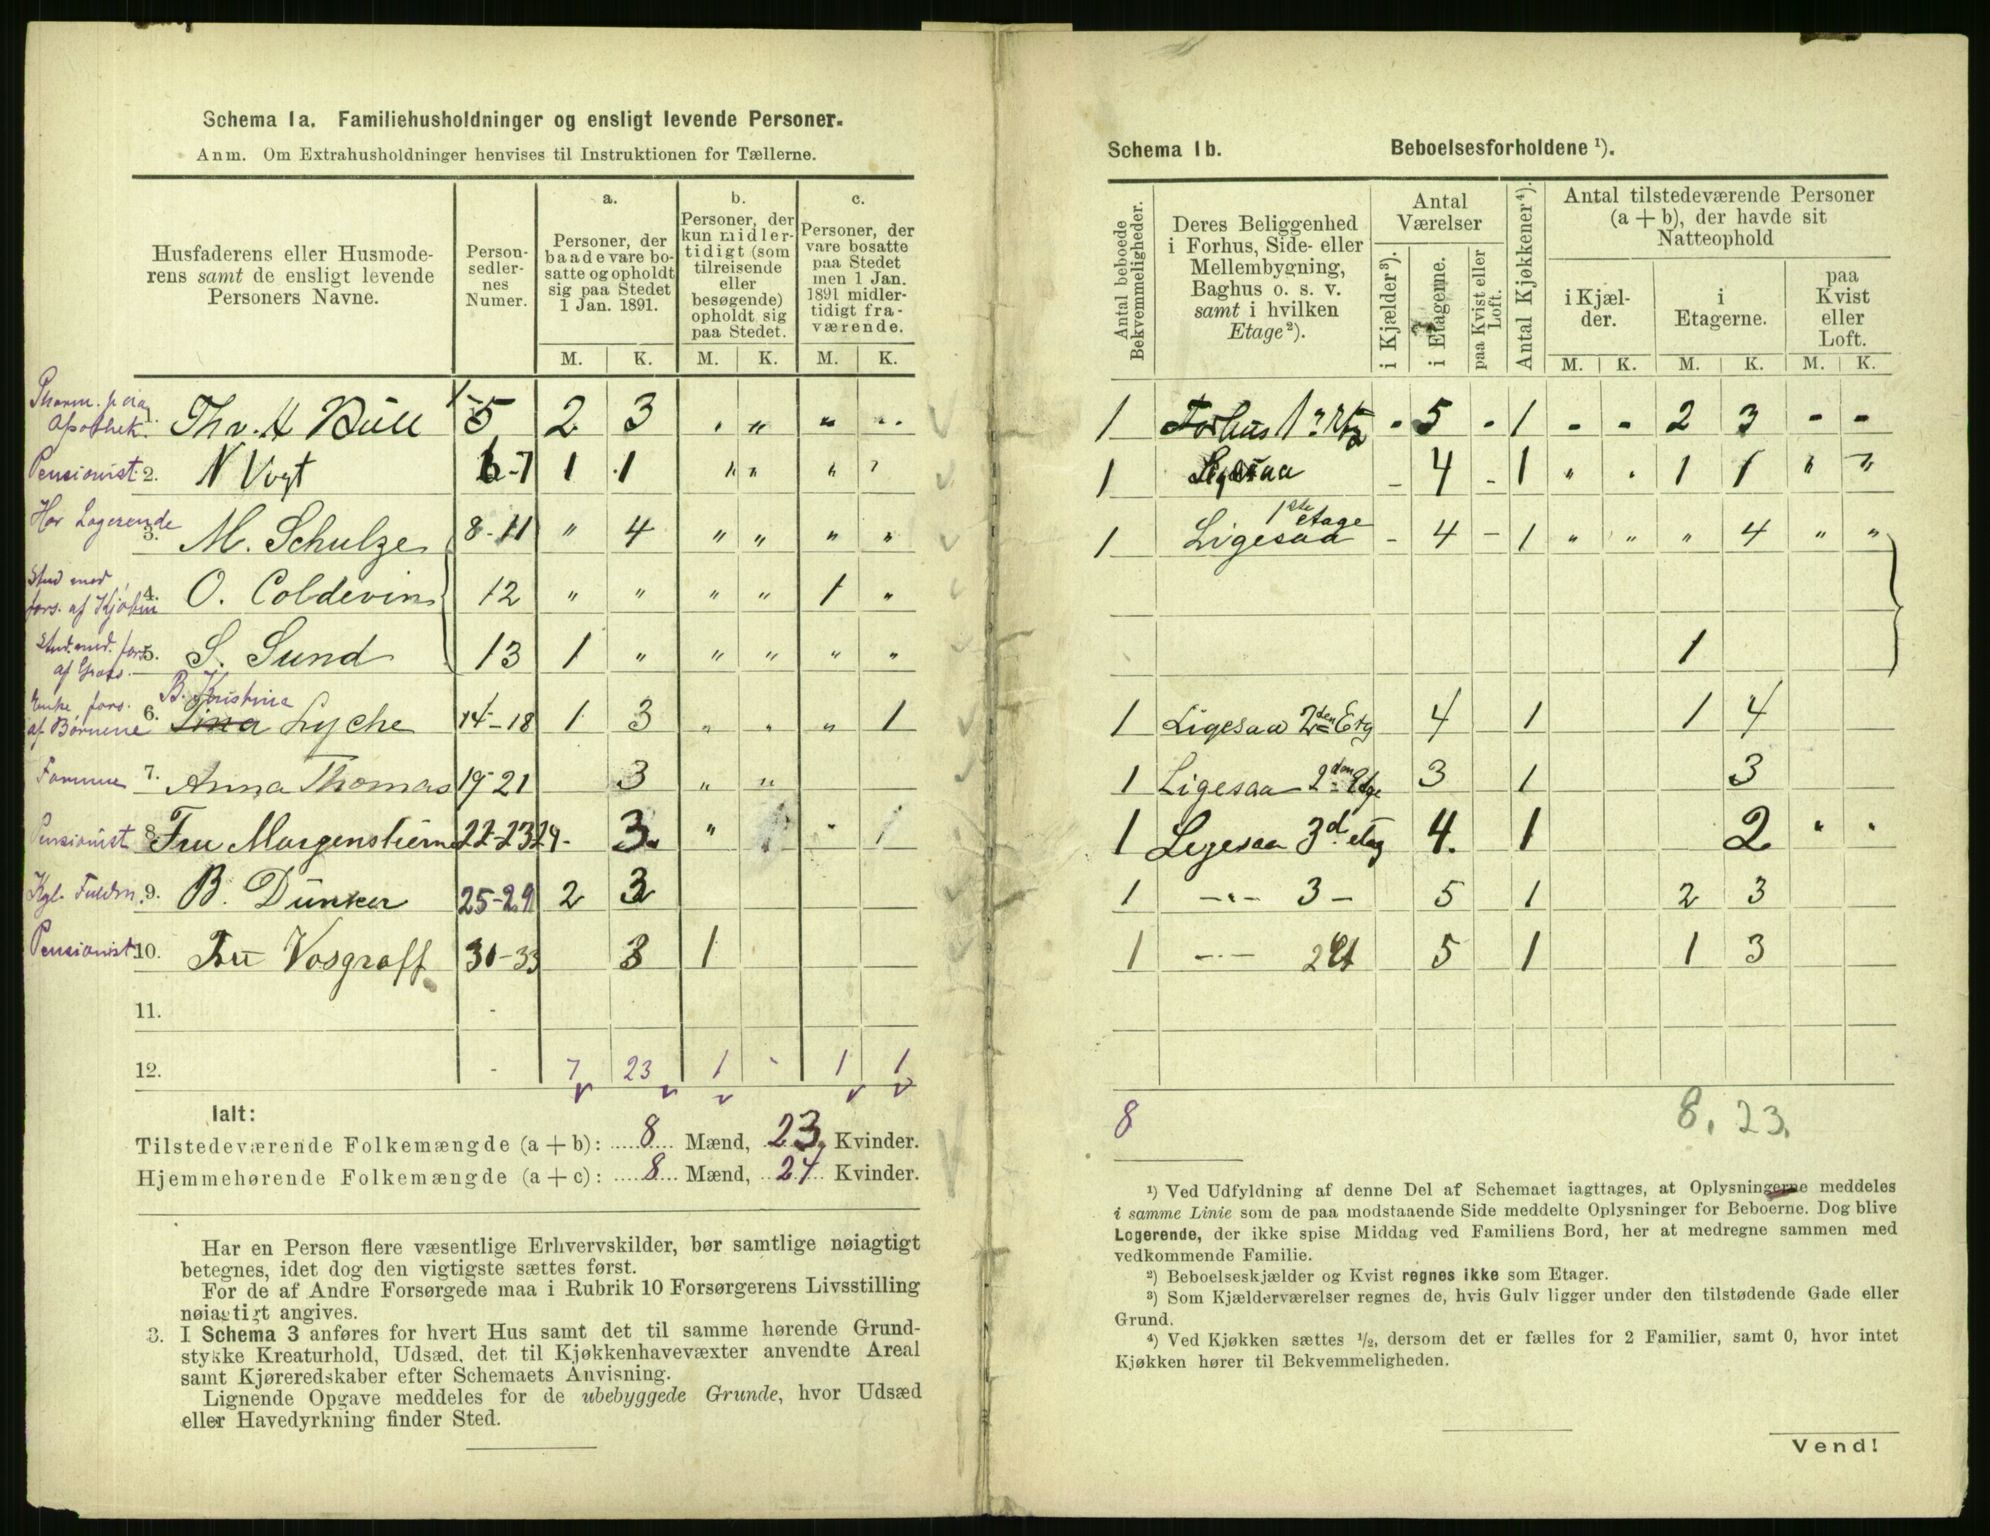 Schema 1a. Familiehusholdninger og ensligt levende Personer.
Anm. Om Extrahusholdninger henvises til Instruktionen for Tællerne.
Husfaderens eller Husmoderens samt de ensligt levende Personers Navne.
Personsedlernes Numer.
a.
Personer, der baade vare bosatte og opholdt sig paa Stedet 1 Jan. 1891.
b.
Personer, der kun midlertidigt (som tilreisende eller besøgende) opholdt sig paa Stedet.
c.
Personer, der vare bosatte paa Stedet men 1 Jan. 1891 midlertidigt fraværende.
M. K. M. K. M. K.
Apothek. Thv. H Bull 1-5 2 3 " " " "
Pensionist 2. N Vogt 6-7 1 1 " " " "
Har Logerende 3. M. Schulze 8-11 " 4 " " " "
Stud med fors. af 4. O. Coldevin 12 " " " " 1 "
Stud. med. fors. af 5. S. Sund 13 1 " " " " "
Enke fors. af Børnene 6. B. Kristina Lyche 14-18 1 3 " " " 1
7. Anna Thomas 19-21 3 " "
Pensionist 8. Fru Morgenstierne 22-23 24- 3 " - 1
Kgl. Fuldm. 9. B. Dunker 25-29 2 3
Pensionist 10. Fru Vosgraff 31-33 3 1
11. -
12. - 7 23 1 - 1 1
Ialt:
Tilstedeværende Folkemængde (a + b): 8 Mænd, 23 Kvinder.
Hjemmehørende Folkemængde (a + c): 8 Mænd, 24 Kvinder.
Har en Person flere væsentlige Erhvervskilder, bør samtlige nøiagtigt
betegnes, idet dog den vigtigste sættes først.
For de af Andre Forsørgede maa i Rubrik 10 Forsørgerens Livsstilling
nøiagtigt angives.
3. I Schema 3 anføres for hvert Hus samt det til samme hørende Grund-
stykke Kreaturhold, Udsæd, det til Kjøkkenhavevæxter anvendte Areal
samt Kjøreredskaber efter Schemaets Anvisning.
Lignende Opgave meddeles for de ubebyggede Grunde, hvor Udsæd
eller Havedyrkning finder Sted.
Schema 1b. Beboelsesforholdene ¹).
Antal beboede Bekvemmeligheder.
Deres Beliggenhed i Forhus, Side- eller Mellembygning, Baghus o. s. v. samt i hvilken Etage ²).
Antal Værelser
i Kjælder ³).
i Etagerne.
paa Kvist eller Loft.
Antal Kjøkkener ⁴).
Antal tilstedeværende Personer (a + b), der havde sit Natteophold
i Kjælder.
i Etagerne.
paa Kvist eller Loft.
M. K. M. K. M. K.
1 Forhus 1 - 5 - 1 - - 2 3 - -
1 Ligesaa - 4 - 1 " " 1 1 " "
1 Ligesaa 1ste etage - 4 - 1 " " " 4 " "
1
1 Ligesaa 2den Etg 4 1 1 4
1 Ligesaa 2den Etge 3 1 3
1 Ligesaa 3d. etag 4. 1 2 " "
1 -"- 3 - 5 1 2 3
1 -"- 2 Et 5 1 1 3
8 8. 23.
¹) Ved Udfyldning af denne Del af Schemaet iagttages, at Oplysningerne meddeles
i samme Linie som de paa modstaaende Side meddelte Oplysninger for Beboerne. Dog blive
Logerende, der ikke spise Middag ved Familiens Bord, her at medregne sammen med
vedkommende Familie.
²) Beboelseskjælder og Kvist regnes ikke som Etager.
³) Som Kjælderværelser regnes de, hvis Gulv ligger under den tilstødende Gade eller
Grund.
⁴) Ved Kjøkken sættes ½, dersom det er fælles for 2 Familier, samt 0, hvor intet
Kjøkken hører til Bekvemmeligheden.
Vend!